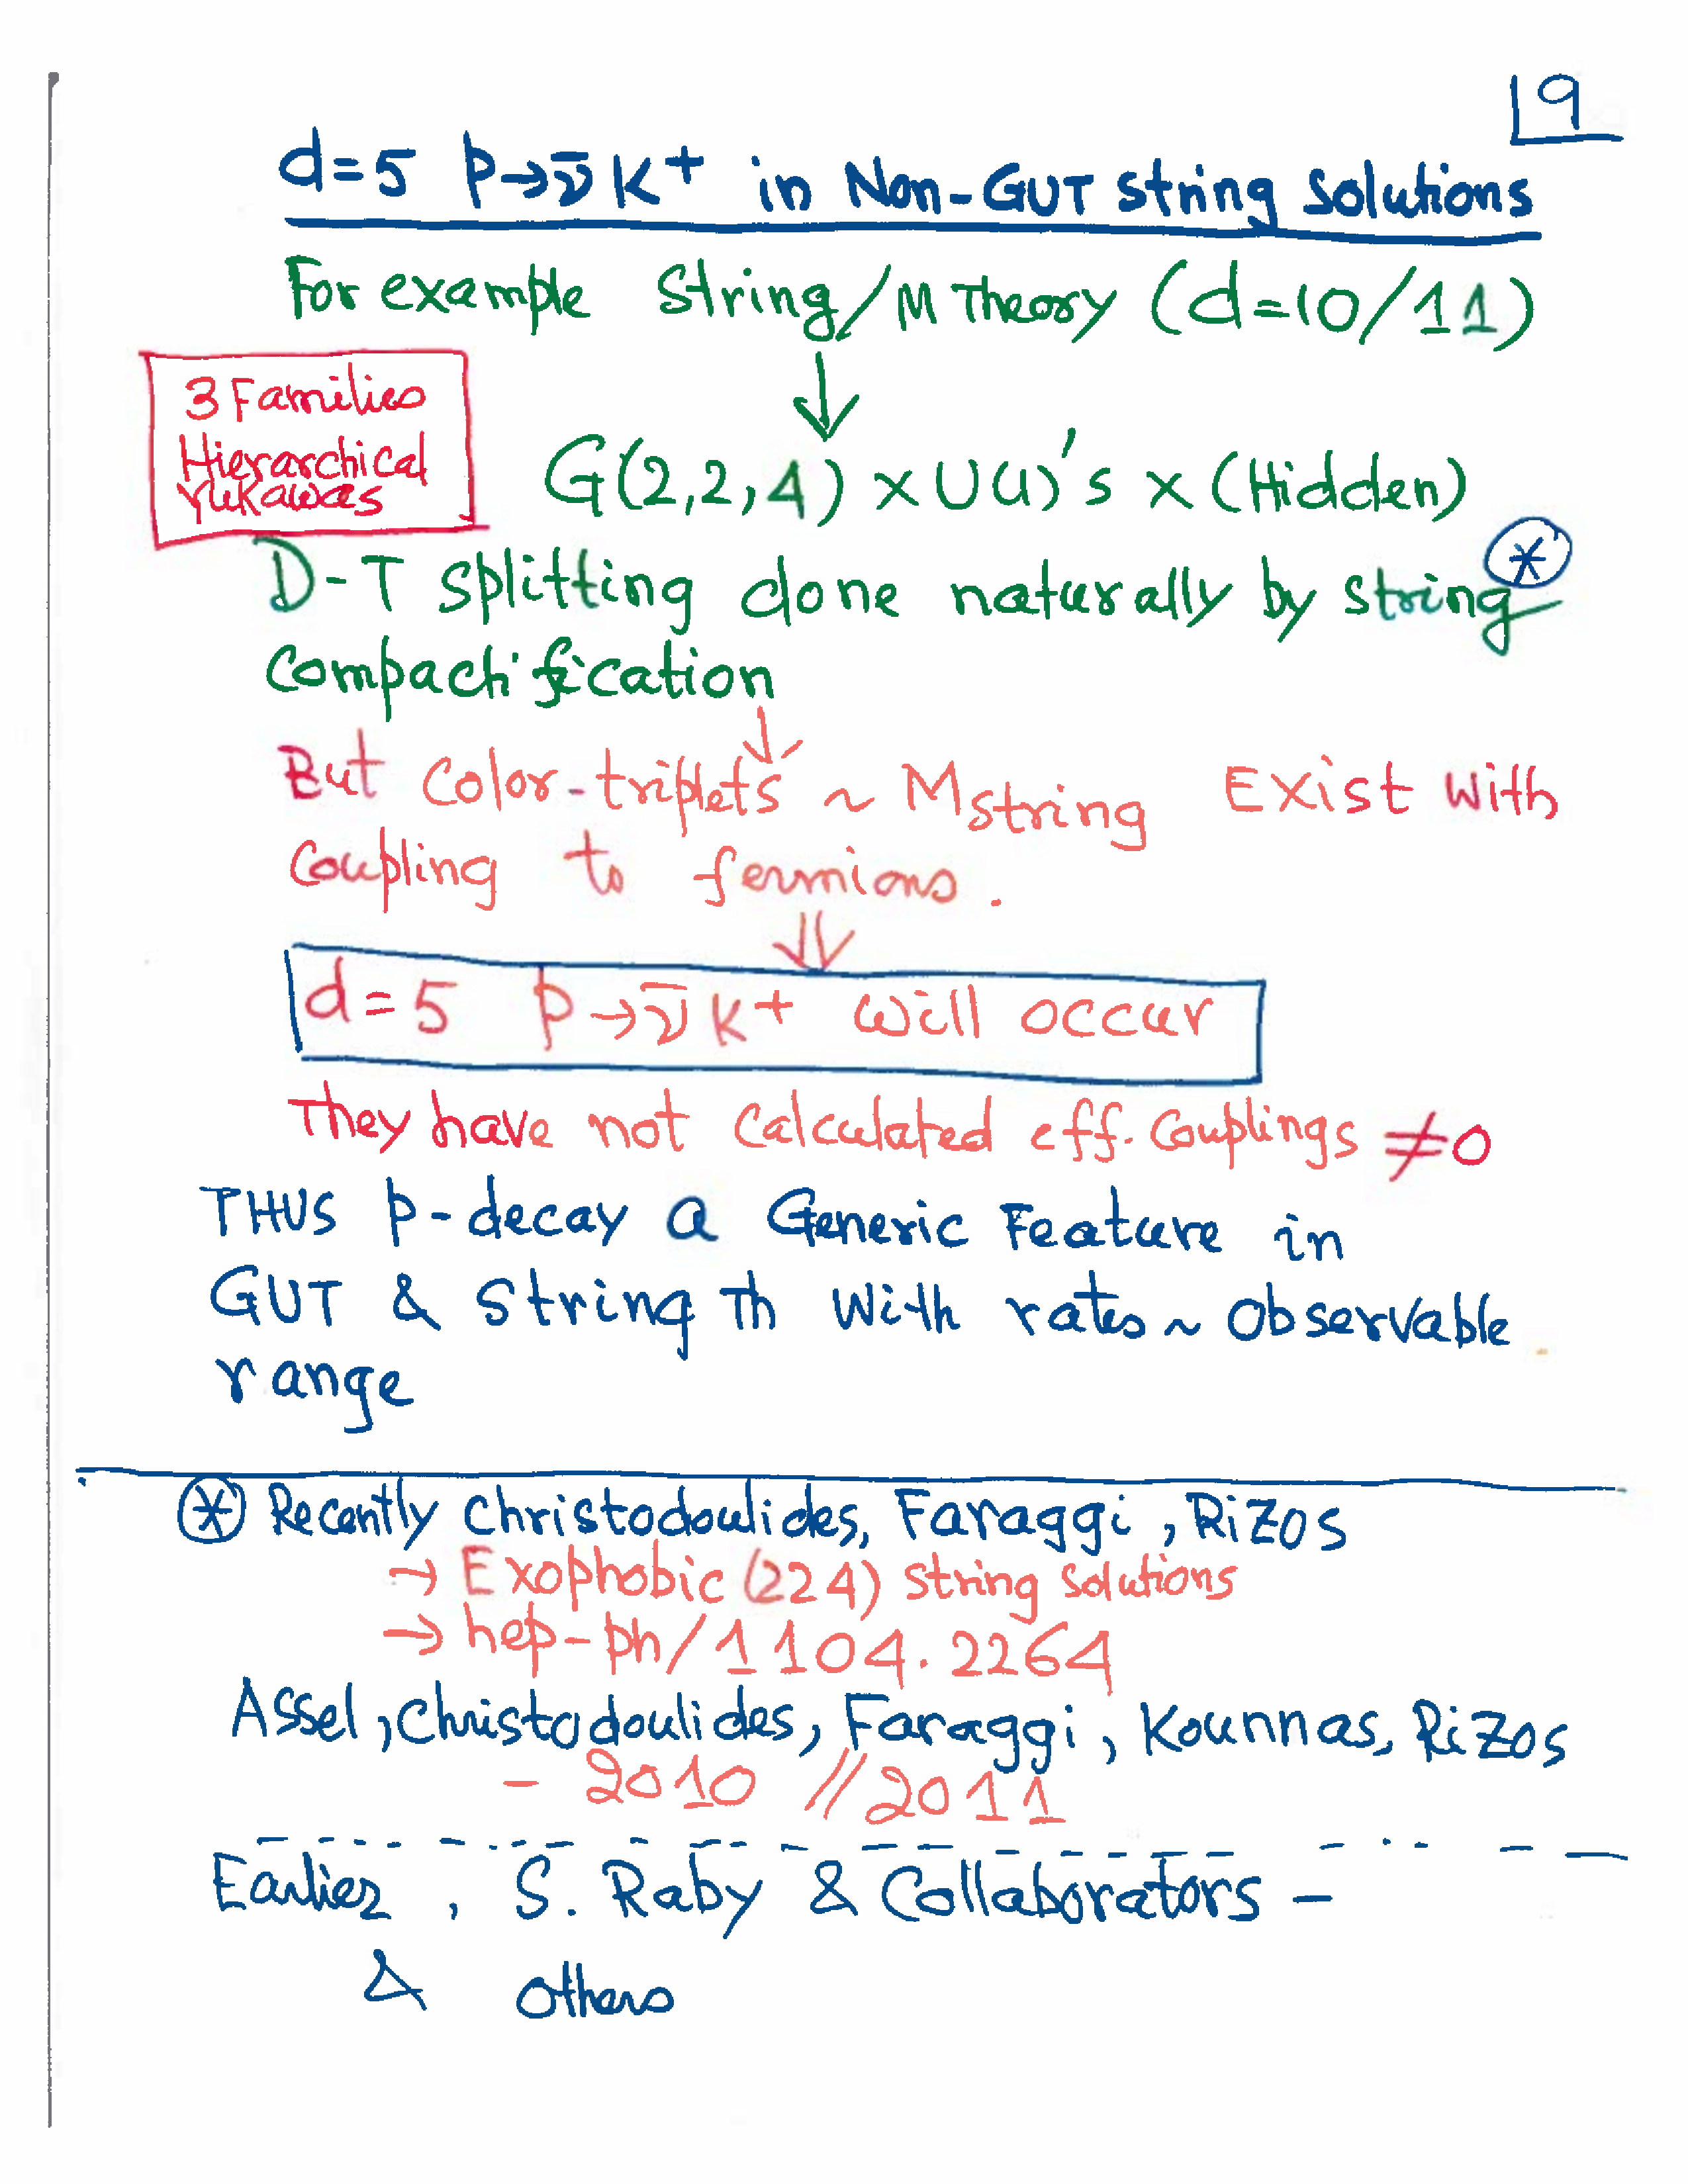 19
d=5 p→ν̄K+ in Non-GUT string Solutions
For example String/M Theory (d=10/11)
↓
3 Families
Hierarchical
Yukawas
G(2,2,4) × U(1)'s × (Hidden)
D-T splitting done naturally by string ⊛
Compactification
↓
But Color-triplets ~ Mstring Exist with
Coupling to fermions.
⇓
d=5 p→ν̄K+ will occur
They have not calculated eff. Couplings ≠0
THUS p-decay a Generic Feature in
GUT & String Th with rates ~ Observable
range
⊛ Recently Christodoulides, Faraggi, Rizos
→ Exophobic (224) string solutions
→ hep-ph/1104.2264
Assel, Christodoulides, Faraggi, Kounnas, Rizos
- 2010 // 2011
Earlier, S. Raby & Collaborators -
& others